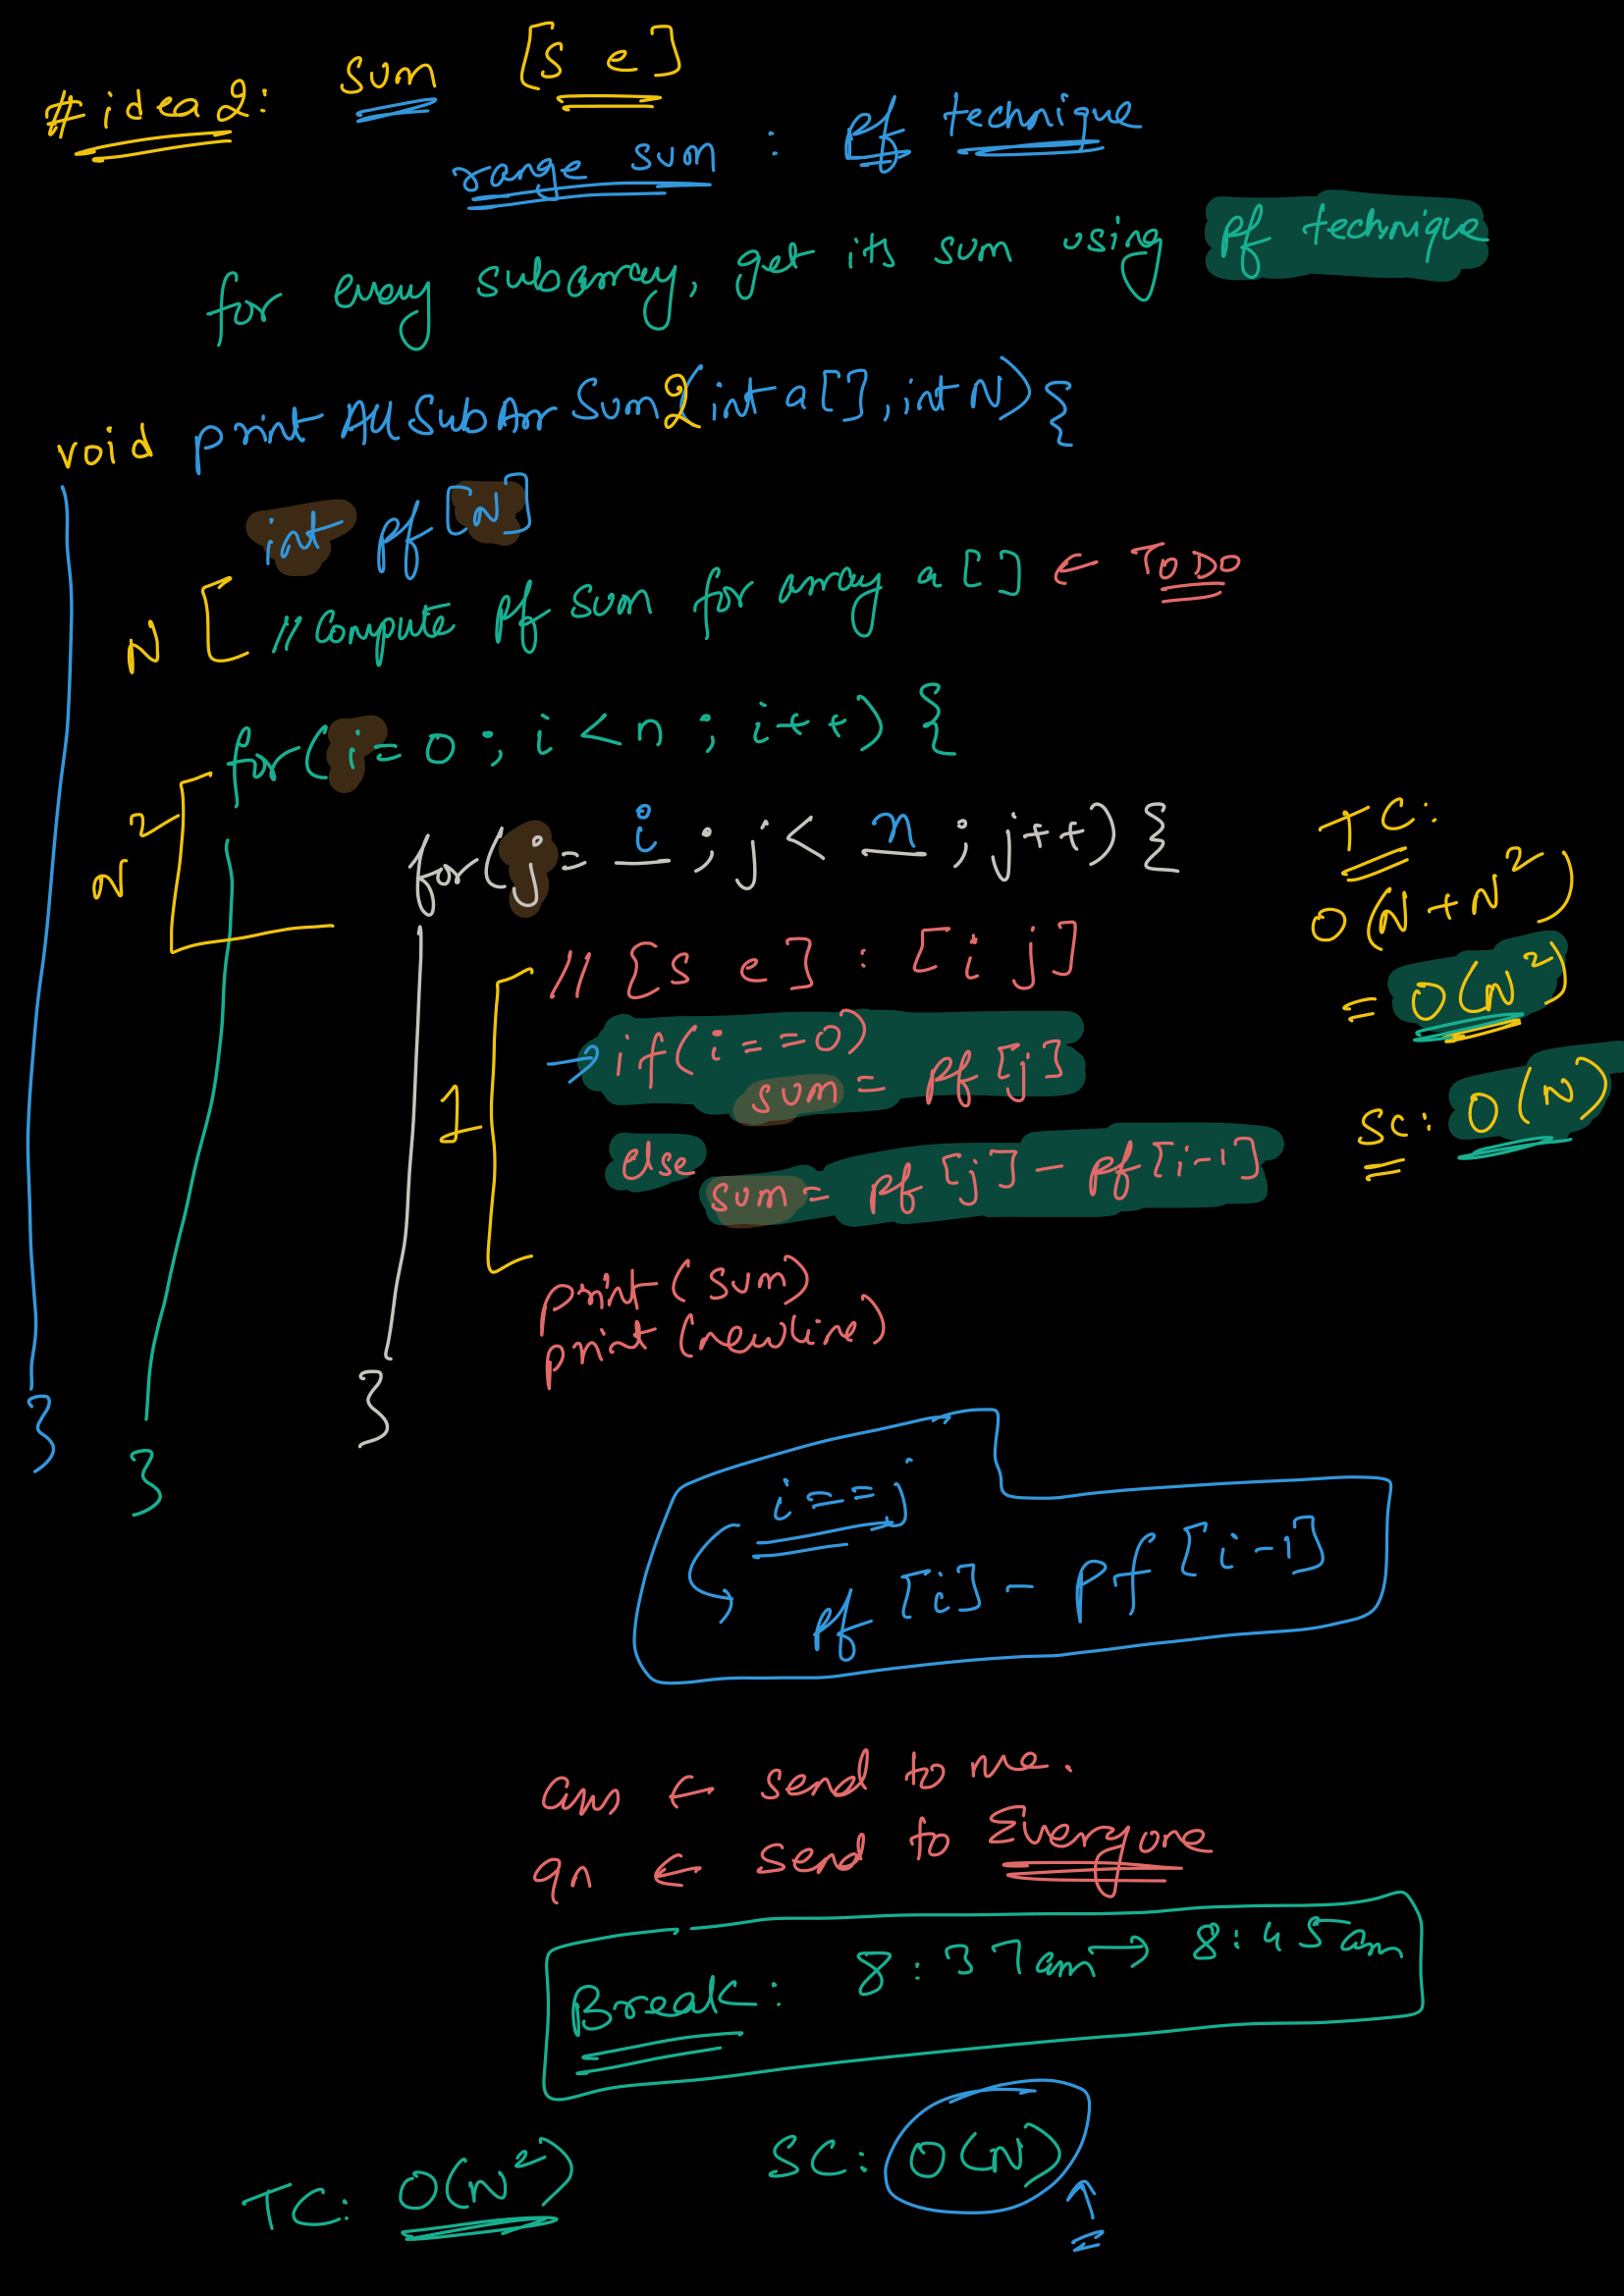 #idea2: sum [s e]
range sum : pf technique
for every subarray, get its sum using pf technique
void printAllSubArrSum2(int a[], int N){
int pf[N]
N [ // Compute pf sum for array a[] ← TODO
for(i=0; i<n; i++) {
N²
for(j= i ; j< n ; j++) {
TC:
O(N+N²)
= O(N²)
// [s e] : [i j]
→ if(i==0)
sum = pf[j]
SC: O(N)
1
else
sum = pf[j] - pf[i-1]
print(sum)
print(newline)
}
}
}
i==j
pf[i] - pf[i-1]
ans ← send to me.
qn ← send to Everyone
Break: 8:37am → 8:45am
TC: O(N²) SC: O(N)